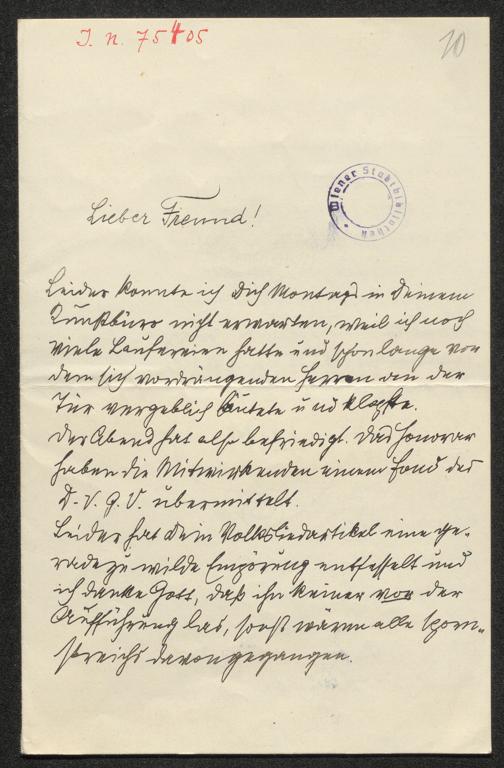 I. n. 75405
10
Wiener Stadtbibliothek
Lieber Freund!
Leider konnte ich Dich Montags in Deinem
Kunstbüro nicht erwarten, weil ich noch
viele Laufereien hatte und schon lange vor
dem sich vordrängenden Herren an der
Tür vergeblich läutete und klopfte.
Der Abend hat also befriedigt. Das Honorar
haben die Mitwirkenden einem Fond des
D. V. G. V. übermittelt.
Leider hat Dein Volksliedartikel eine ge-
radezu wilde Empörung entfesselt und
ich danke Gott, daß ihn keiner vor der
Aufführung las, sonst wären alle sporn-
streichs davongegangen.